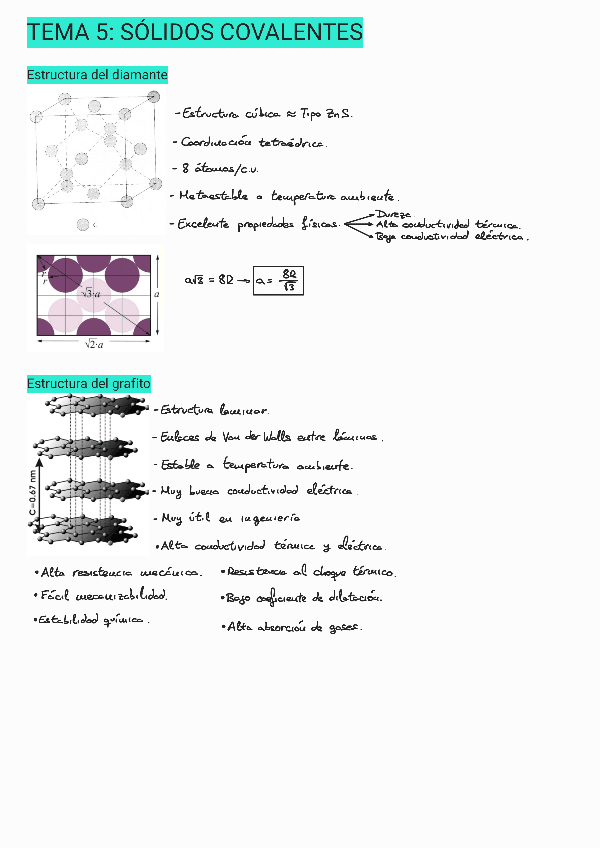 TEMA 5: SÓLIDOS COVALENTES
Estructura del diamante
- Estructura cúbica ≈ Tipo ZnS.
- Coordinación tetraédrica.
- 8 átomos/c.u.
- Metaestable a temperatura ambiente.
- Excelente propiedades físicas.
Dureza
Alta conductividad térmica.
Baja conductividad eléctrica.
C
r
r
√3·a
a
√2·a
a√3 = 8R → a = 8R/√3
Estructura del grafito
- Estructura laminar.
- Enlaces de Van der Walls entre láminas.
- Estable a temperatura ambiente.
- Muy buena conductividad eléctrica.
- Muy útil en ingeniería
C=0.67 nm
• Alta conductividad térmica y eléctrica.
• Alta resistencia mecánica.
• Resistencia al choque térmico.
• Fácil mecanizabilidad.
• Bajo coeficiente de dilatación.
• Estabilidad química.
• Alta absorción de gases.